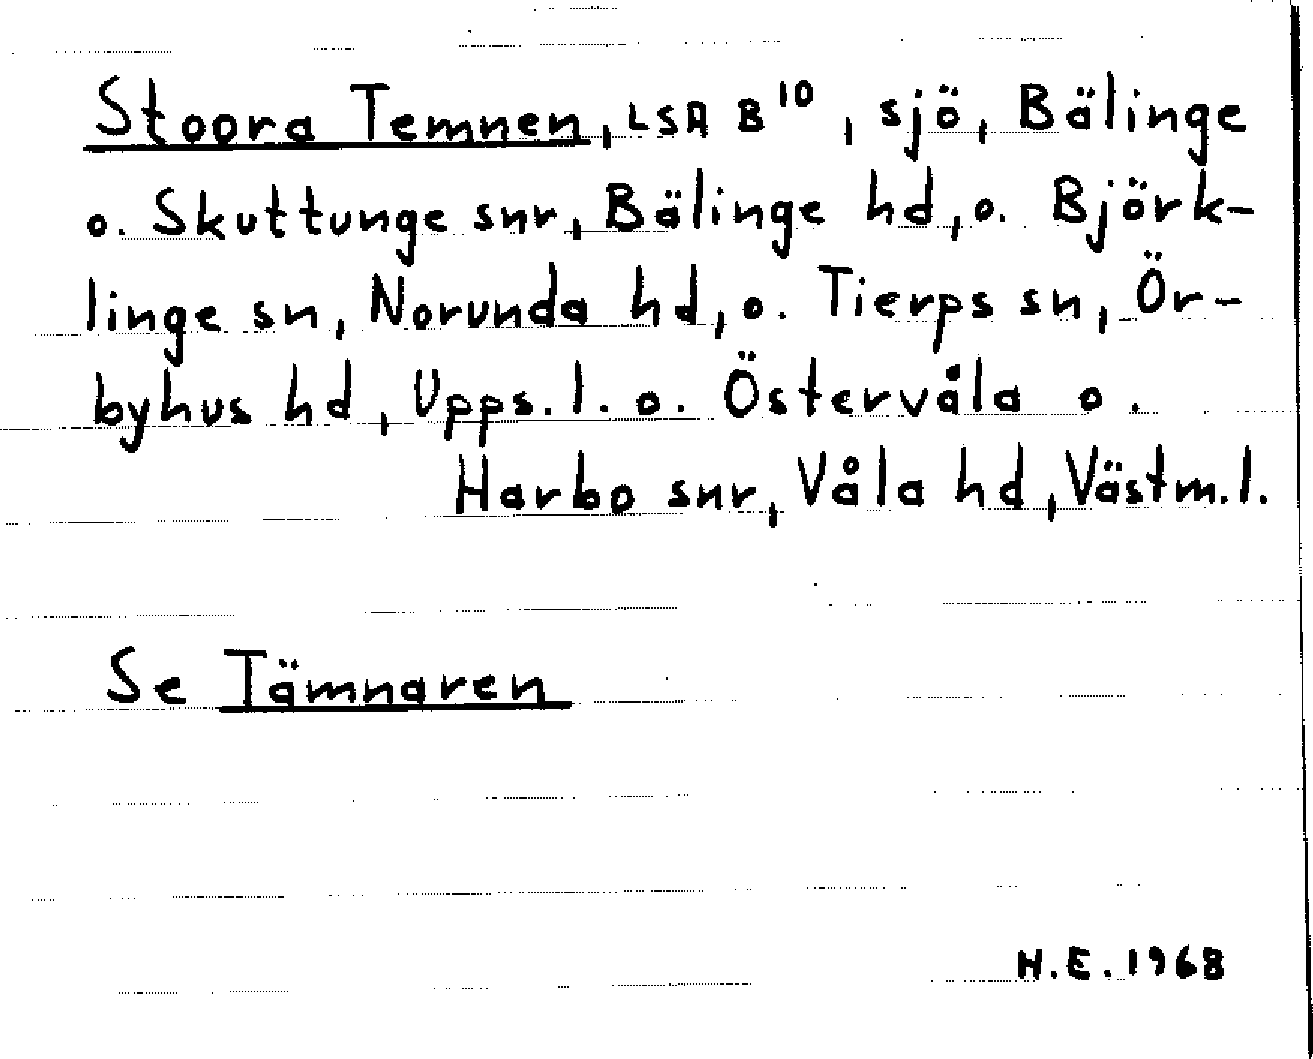 Stoora Temnen, LSA B¹⁰, sjö, Bälinge
o. Skuttunge snr, Bälinge hd, o. Björk-
linge sn, Norunda hd, o. Tierps sn, Ör-
byhus hd, Upps. l. o. Östervåla o.
Harbo snr, Våla hd, Västm. l.
Se Tämnaren
H.E. 1968